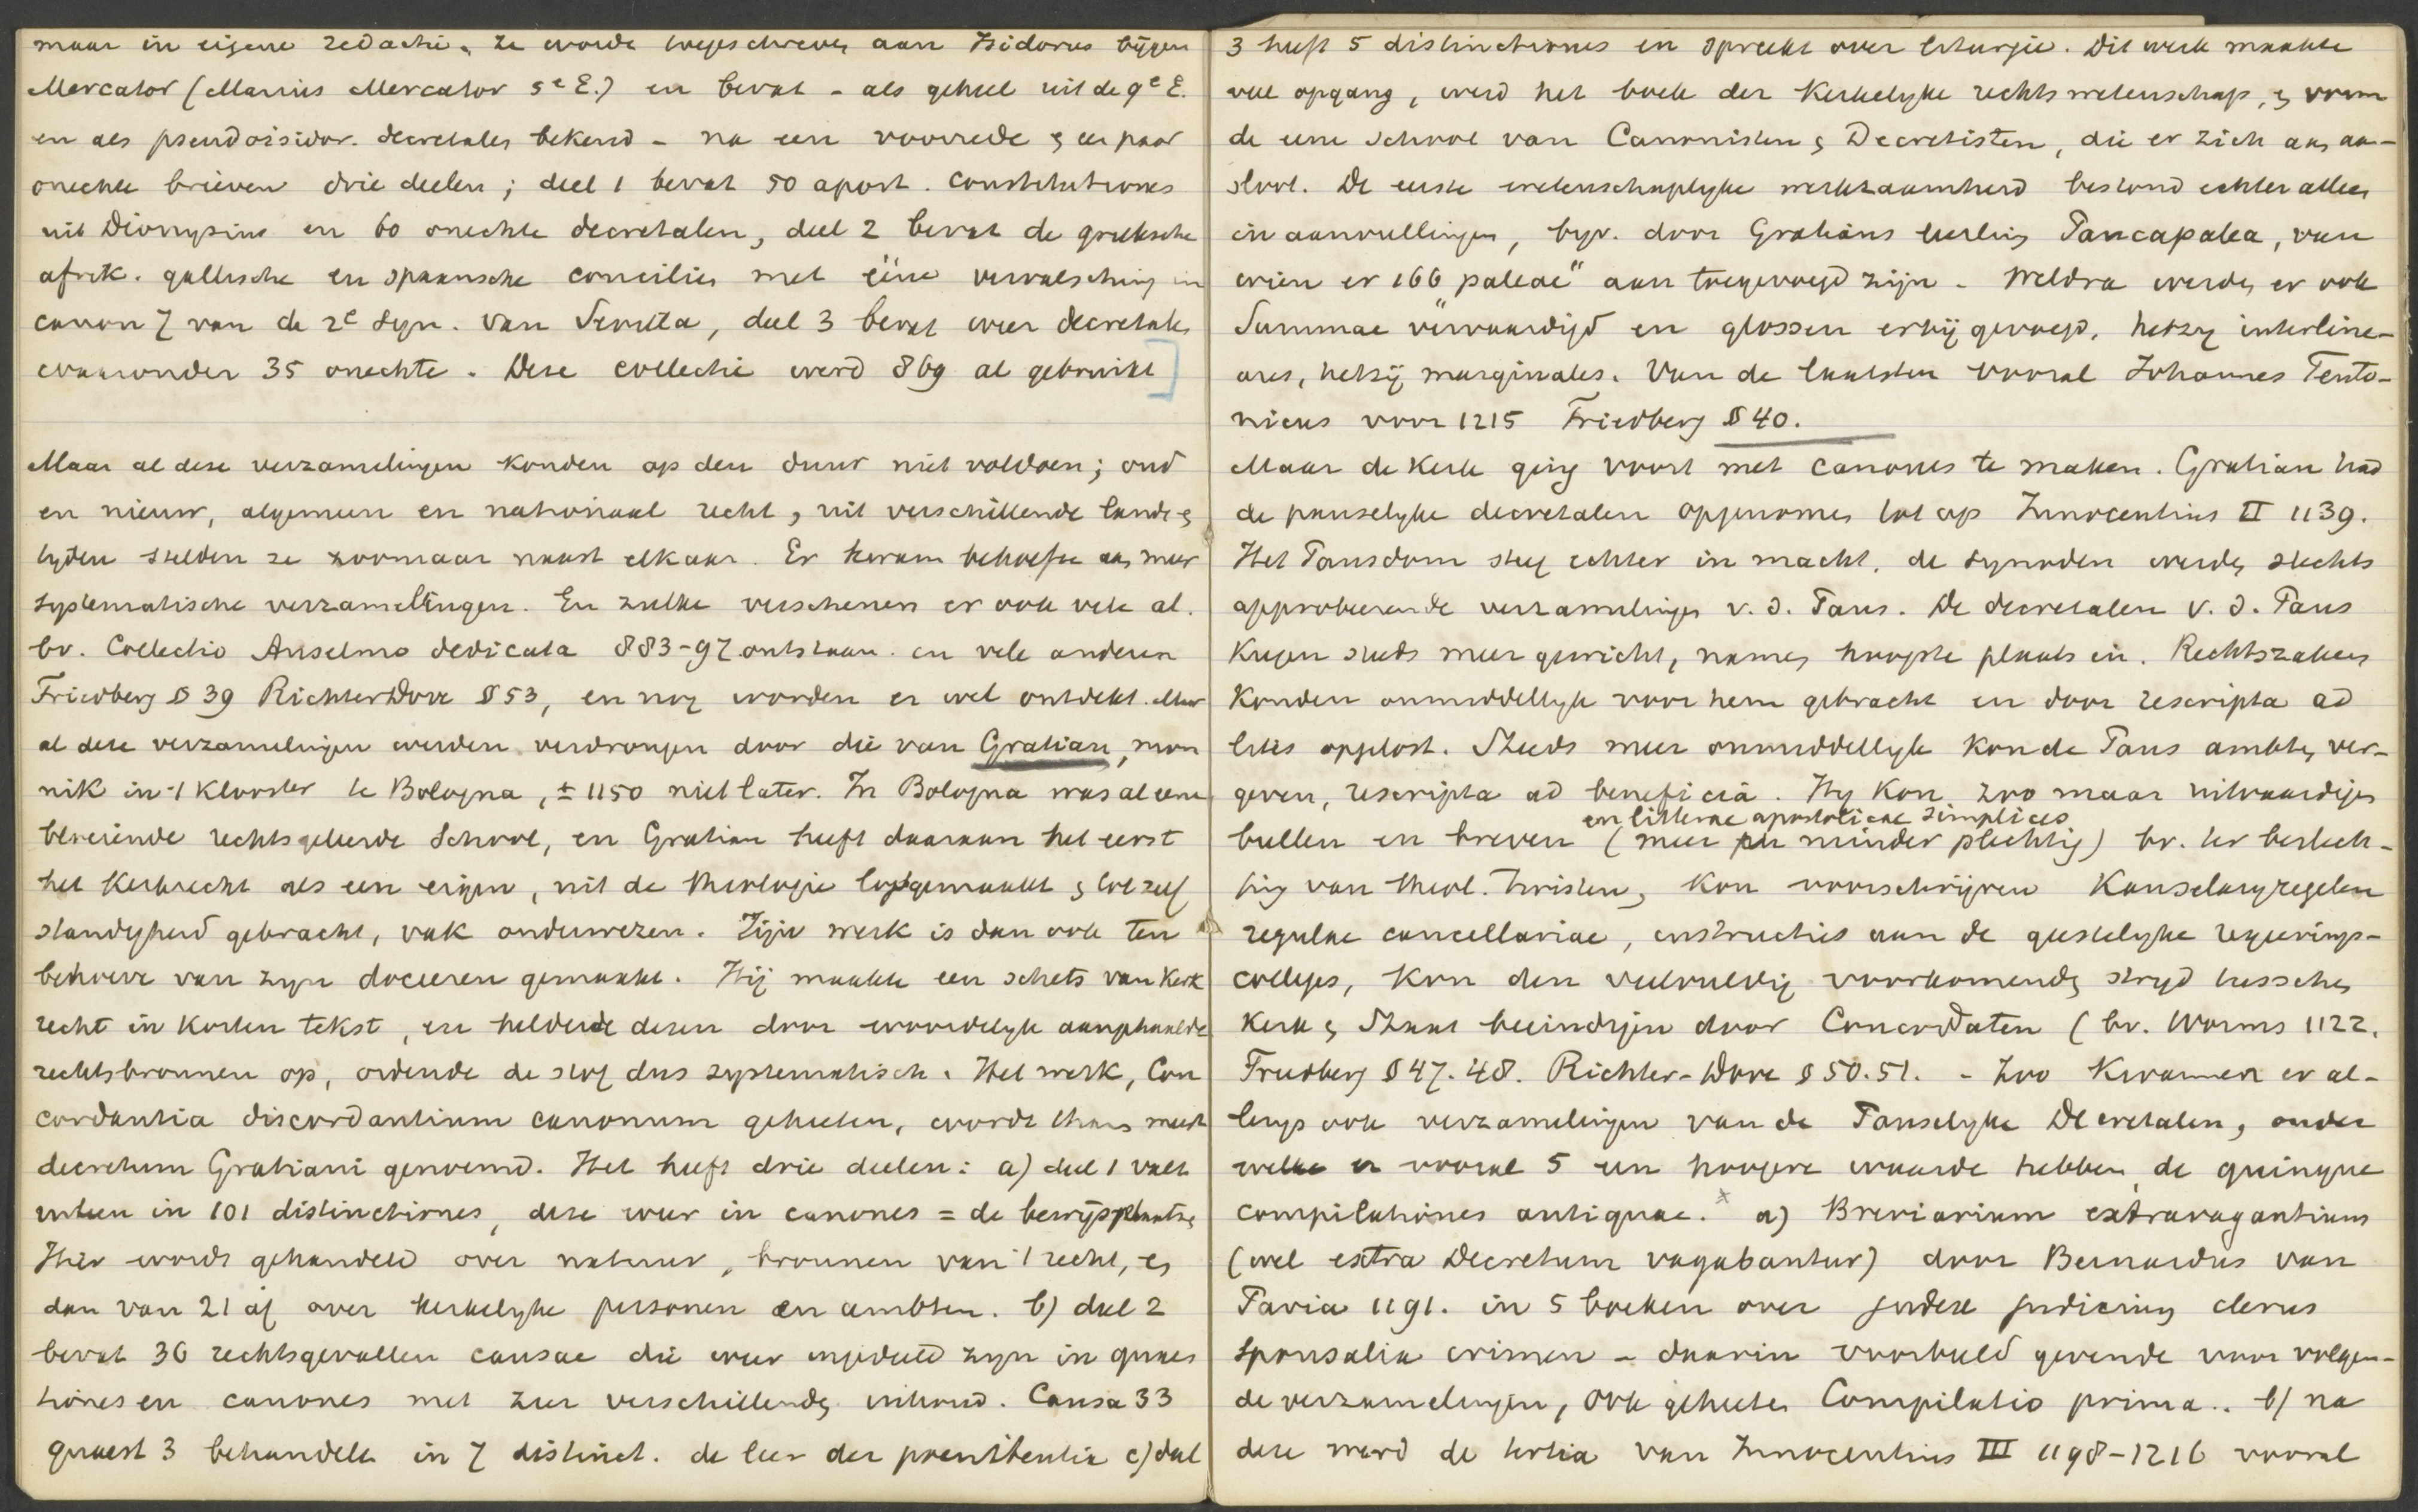 maar in eigene redactie. Ze worde toegeschreven aan Isidorus bijgen
Mercator (Marius Mercator 5e E.) en bevat - als geheel uit de 9e E.
en als pseudoisidor. decretales bekend - na een voorrede & een paar
onechte brieven drie deelen; deel 1 bevat 50 apost. constitutiones
uit Dionysius en 60 onechte decretalen, deel 2 bevat de grieksche
afrik. gallische en spaansche concilies met ééne vervalsching in
canon 7 van de 2e syn. van Sevilla, deel 3 bevat weer decretales
waaronder 35 onechte. Deze collectie werd 869 al gebruikt]
Maar al deze verzamelingen konden op den duur niet voldoen; oud
en nieuw, algemeen en nationaal recht, uit verschillende landen &
tyden stelden ze zoomaar naast elkaar. Er kwam behoefte aan meer
systematische verzamelingen. En zulke verschenen er ook vele al.
bv. Collectio Anselmo dedicata 883-97 ontstaan. en vele anderen
Friedberg § 39 Richter Dove § 53, en nog worden er wel ontdekt. Maar
al deze verzamelingen werden verdrongen door die van Gratian, mon
nik in 't klooster te Bologna, ± 1150 niet later. In Bologna was al eene
bloeiende rechtsgeleerde School, en Gratian heeft daaraan het eerst
het Kerkrecht als een eigen, uit de theologie losgemaakt & tot zelf
standigheid gebracht, vak onderwezen. Zijn werk is dan ook ten
behoeve van zyn doceeren gemaakt. Hij maakte een schets van Kerk
recht in korten tekst, en helderde dezen door woordelyk aangehaalde
rechtsbronnen op, ordende de stof dus systematisch. Het werk, Con
cordantia discordantium canonum geheeten, wordt thans meest
decretum Gratiani genoemd. Het heeft drie deelen: a) deel 1 valt
uiteen in 101 distinctiones, deze weer in canones = de bewijsplaatsen
Hier wordt gehandeld over natuur, bronnen van 't recht, en
dan van 21 af over kerkelyke personen en ambten. b) deel 2
bevat 36 rechtsgevallen causae die weer ingedeeld zyn in quaes
tiones en canones met zeer verschillenden inhoud. Causa 33
quaest 3 behandelt in 7 distinct. de leer der poenitentia c) deel
3 heeft 5 distinctiones en spreekt over liturgie. Dit werk maakte
veel opgang, werd het boek der Kerkelyke rechtswetenschap, & vorm
de eene school van Canonisten & Decretisten, die er zich aan aan-
sloot. De eerste wetenschaplyke werkzaamheid bestond echter alleen
in aanvullingen, byv. door Gratians leerling Paucapalea, van
wien er 166 „paleae" aan toegevoegd zijn. Weldra werden er ook
Summae vervaardigd en glossen erbij gevoegd, hetzy interline-
ares, hetzij marginales. Van de laatsten vooral Johannes Teuto-
nicus voor 1215 Friedberg § 40.
Maar de Kerk ging voort met canones te maken. Gratian had
de pauselyke decretalen opgenomen tot op Innocentius II 1139.
Het Pausdom steeg echter in macht, de synoden werden slechts
approbeerende verzamelingen v. d. Paus. De decretalen v. d. Paus
kregen steeds meer gewicht, namen hoogste plaats in. Rechtszaken
konden onmiddellyk voor hem gebracht en door rescripta ad
lites opgelost. Steeds meer onmiddellyk kon de Paus ambten ver-
geven, rescripta ad beneficia. Hy kon zoo maar uitvaardigen
en litterae apostolicae simplices
bullen en breven (meer en minder plechtig) bv. ter beslech-
ting van theol. twisten, kon voorschrijven Kanselaryregelen
regulae cancellariae, instructies aan de geestelyke regeerings-
colleges, kon den veelvuldig voorkomenden stryd tusschen
Kerk & Staat beeindigen door Concordaten (bv. Worms 1122.
Friedberg § 47. 48. Richter-Dove § 50. 51. - Zoo kwamen er al-
lengs ook verzamelingen van de Pauselyke Decretalen, onder
welke er vooral 5 een hoogere waarde hebben, de quinque
compilationes antiquae. x a) Breviarium extravagantium
(wel extra Decretum vagabantur) door Bernardus van
Pavia 1191. in 5 boeken over judex judicium clerus
sponsalia crimen - daarin voorbeeld gevende voor volgen-
de verzamelingen, ook geheeten Compilatio prima.. b) na
deze werd de tertia van Innocentius III 1198-1216 vooral